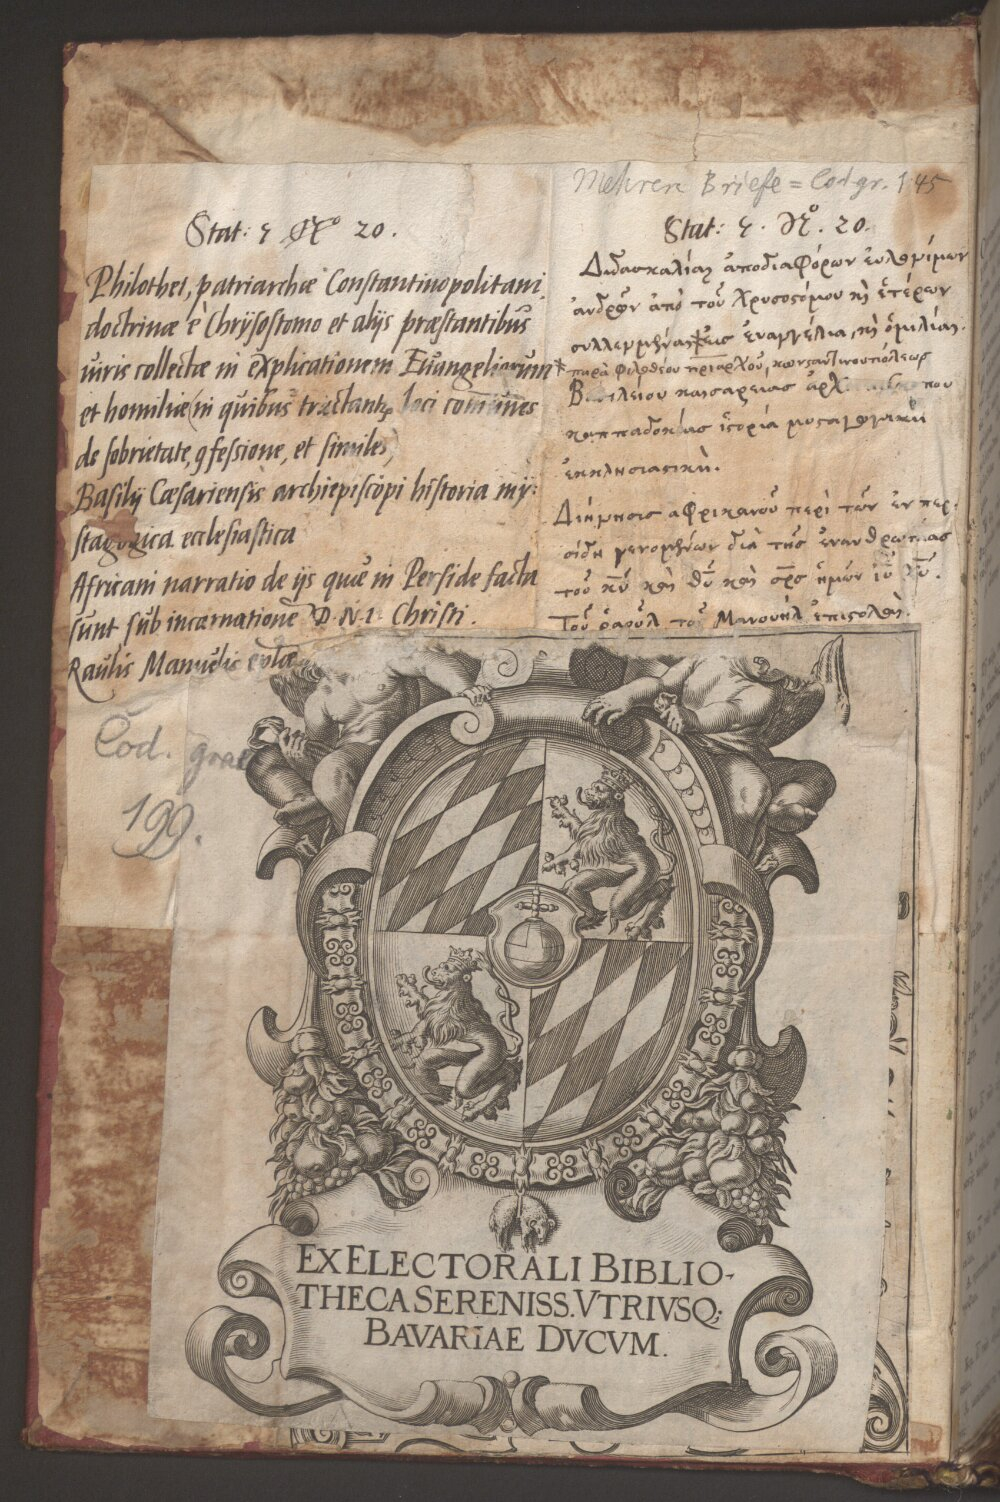 Mehrere Briefe = Cod gr. 145
Stat: 5 No 20.
Philothei, patriarchæ Constantinopolitani,
doctrinæ è Chrysostomo et alijs præstantibus
uiris collectæ in explicationem Euangeliorum
et homiliæ in quibus tractantꝫ loci comunes
de sobrietate, ꝯfessione, et similes,
Basilij Cæsariensis archiepiscopi historia my:
stagogica ecclesiastica
Africani narratio de ijs quæ in Perside facta
sunt sub incarnationē D. N. I. Christi.
Raulis Manuelis ep̄læ
Stat: 5. No. 20.
Διδασκαλίαι ἀπο διαφόρων
ἀνδρῶν ἀπὸ τοῦ Χρυσοστόμου κὴ ἑτέρων
εἰς εὐαγγέλια, κὴ ὁμιλίαι.
παρὰ φιλοθέου πριάρχου κωνσταντινουπόλεως
Βασιλείου καισαρειας
καππαδοκίας ἱστορία μυσταγωγικὴ
ἐκκλησιαστικὴ.
Διήγησις αφρικανοῦ περὶ τῶν ἐν περ:
σίδη γενομένων διὰ τῆς ἐνανθρωπήσας
τοῦ κῦ καὶ θῦ καὶ σρ̅ς ἡμῶν ἰῦ χῦ.
Τοῦ ῥαοὺλ τοῦ Μανουὴλ ἐπιστολαὶ.
Cod. graec
199.
EX ELECTORALI BIBLIO-
THECA SERENISS. VTRIVSQ;
BAVARIAE DVCVM.